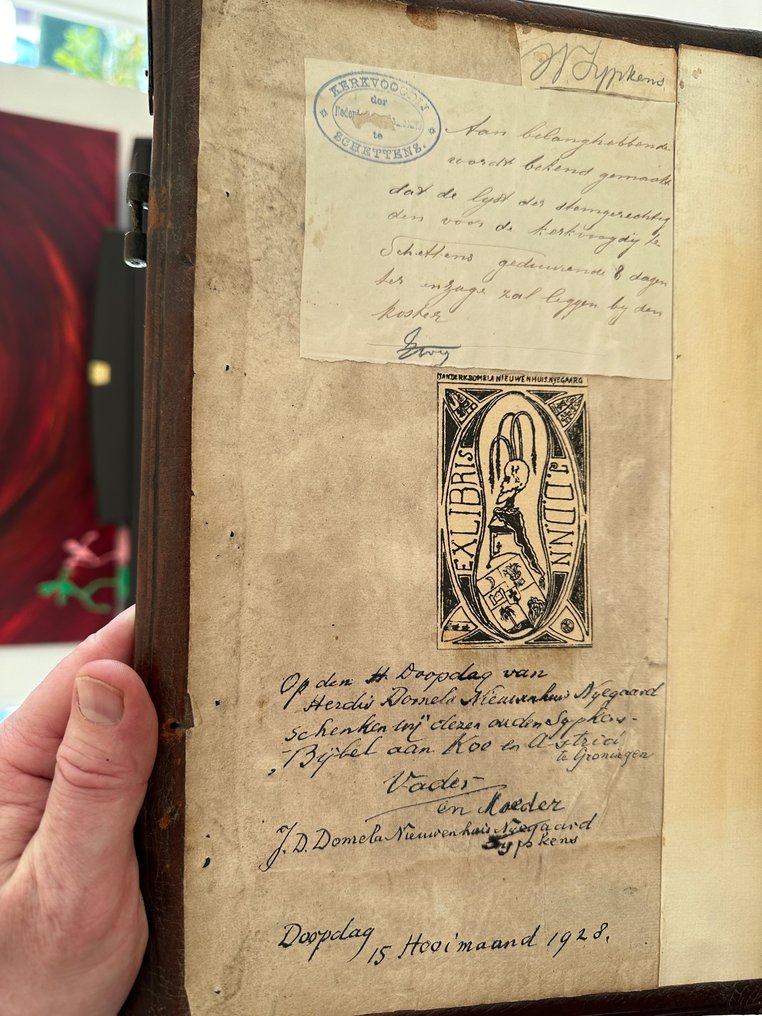 W Sypkens
KERKVOOGDIJ
der
te
SCHETTENS.
Aan belanghebbende
wordt bekend gemaakt
dat de lyst der stemgerechtig
den voor de kerkvoogdy te
Schettens gedurende 8 dagen
ter inzage zal liggen by den
koster
JAN DERK DOMELA NIEUWENHUIS NYEGAARD
EXLIBRIS
J.D.D.N.N
Op den H. Doopdag van
Herdis Domela Nieuwenhuis Nyegaard
schenken wij dezen ouden Sypkens-
Bijbel aan Koo en Astrid
te Groningen
Vader
en Moeder
J. D. Domela Nieuwenhuis Nyegaard
Sypkens
Doopdag
15 Hooimaand 1928.